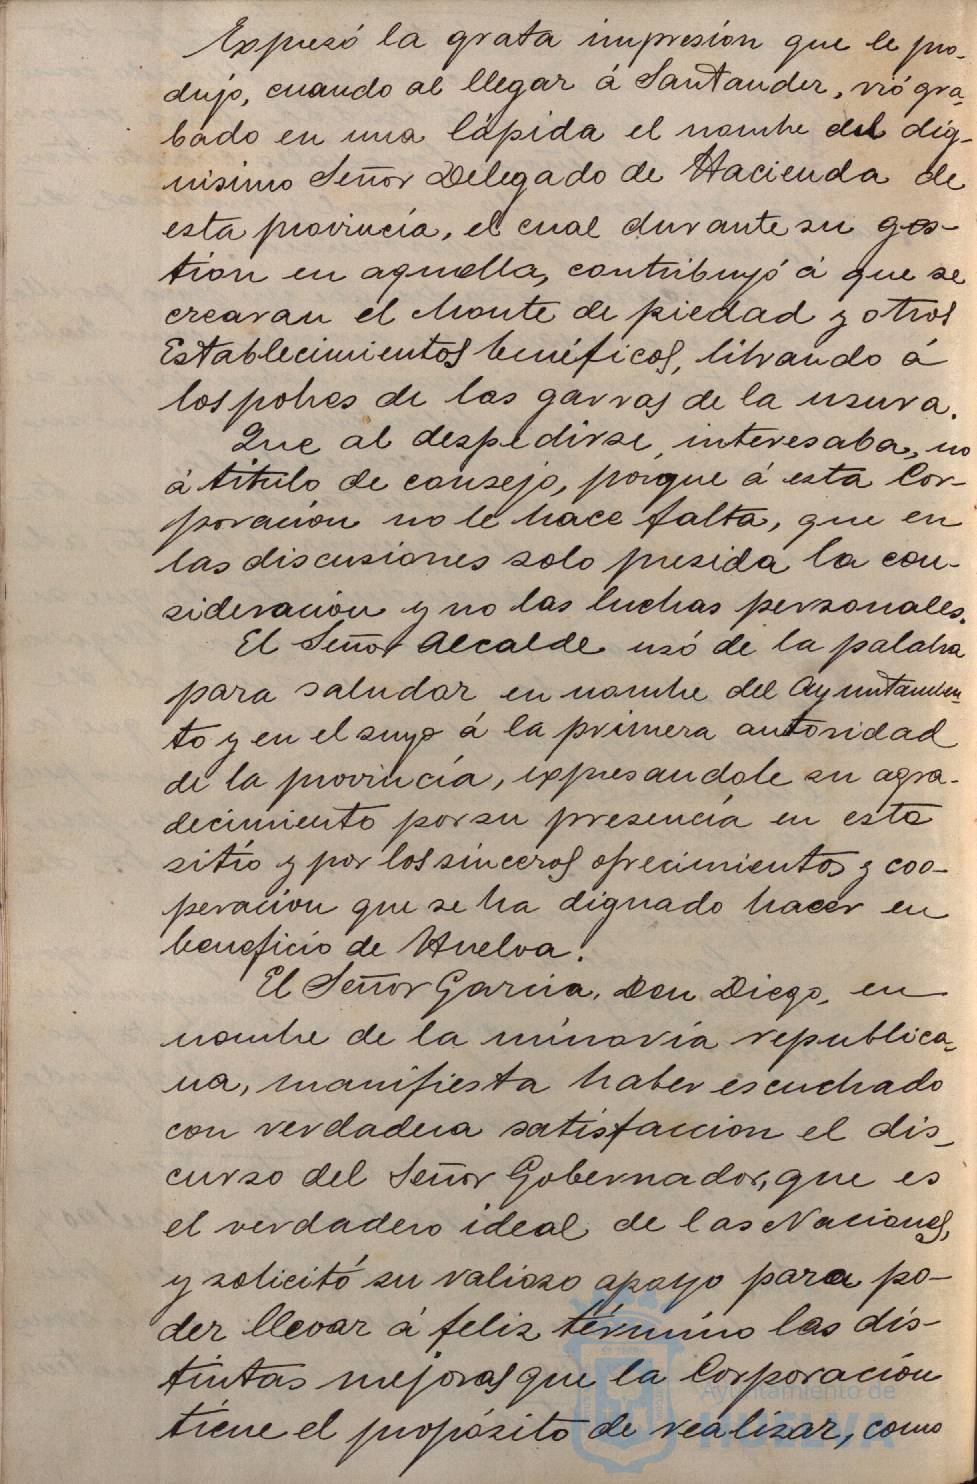 Expresó la grata impresión que le pro-
dujo, cuando al llegar á Santander, vió gra-
bado en una lápida el nombre del dig-
nisimo Señor Delegado de Hacienda de
esta provincia, el cual durante su ges-
tion en aquella, contribuyó á que se
crearan el Monte de piedad y otros
Establecimientos benéficos, librando á
los pobres de las garras de la usura.
Que al despedirse, interesaba, no
á titulo de consejo, porque á esta Cor-
poración no le hace falta, que en
las discusiones solo presida la con-
sideracion y no las luchas personales.
El Señor Alcalde usó de la palabra
para saludar en nombre del Ayuntamien-
to y en el suyo á la primera autoridad
de la provincia, expresandole su agra-
decimiento por su presencia en este
sitio y por los sinceros ofrecimientos y coo-
peracion que se ha dignado hacer en
beneficio de Huelva.
El Señor Garcia, Don Diego, en
nombre de la minoría republica-
na, manifiesta haber escuchado
con verdadera satisfaccion el dis-
curso del Señor Gobernador, que es
el verdadero ideal de las Naciones,
y solicitó su valioso apoyo para po-
der llevar á feliz término las dis-
tintas mejoras que la Corporación
tiene el propósito de realizar, como
Ayuntamiento de
HUELVA